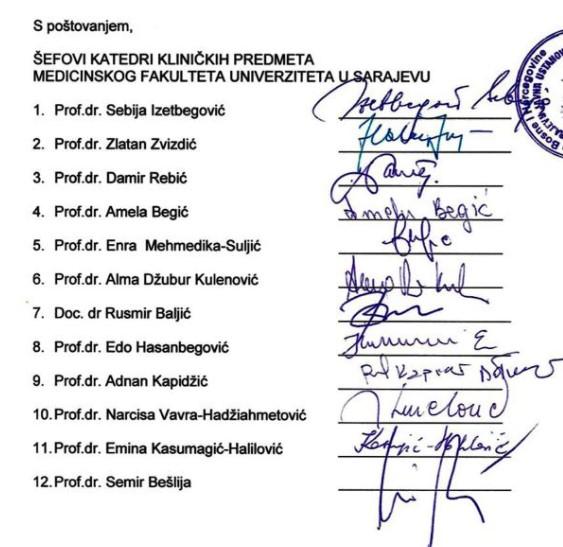 S poštovanjem,
ŠEFOVI KATEDRI KLINIČKIH PREDMETA
MEDICINSKOG FAKULTETA UNIVERZITETA U SARAJEVU
1. Prof.dr. Sebija Izetbegović Izetbegović Seb
2. Prof.dr. Zlatan Zvizdić
3. Prof.dr. Damir Rebić
4. Prof.dr. Amela Begić Amela Begić
5. Prof.dr. Enra Mehmedika-Suljić
6. Prof.dr. Alma Džubur Kulenović
7. Doc. dr Rusmir Baljić
8. Prof.dr. Edo Hasanbegović
9. Prof.dr. Adnan Kapidžić
10. Prof.dr. Narcisa Vavra-Hadžiahmetović
11. Prof.dr. Emina Kasumagić-Halilović
12. Prof.dr. Semir Bešlija
Bosne i Hercegovine